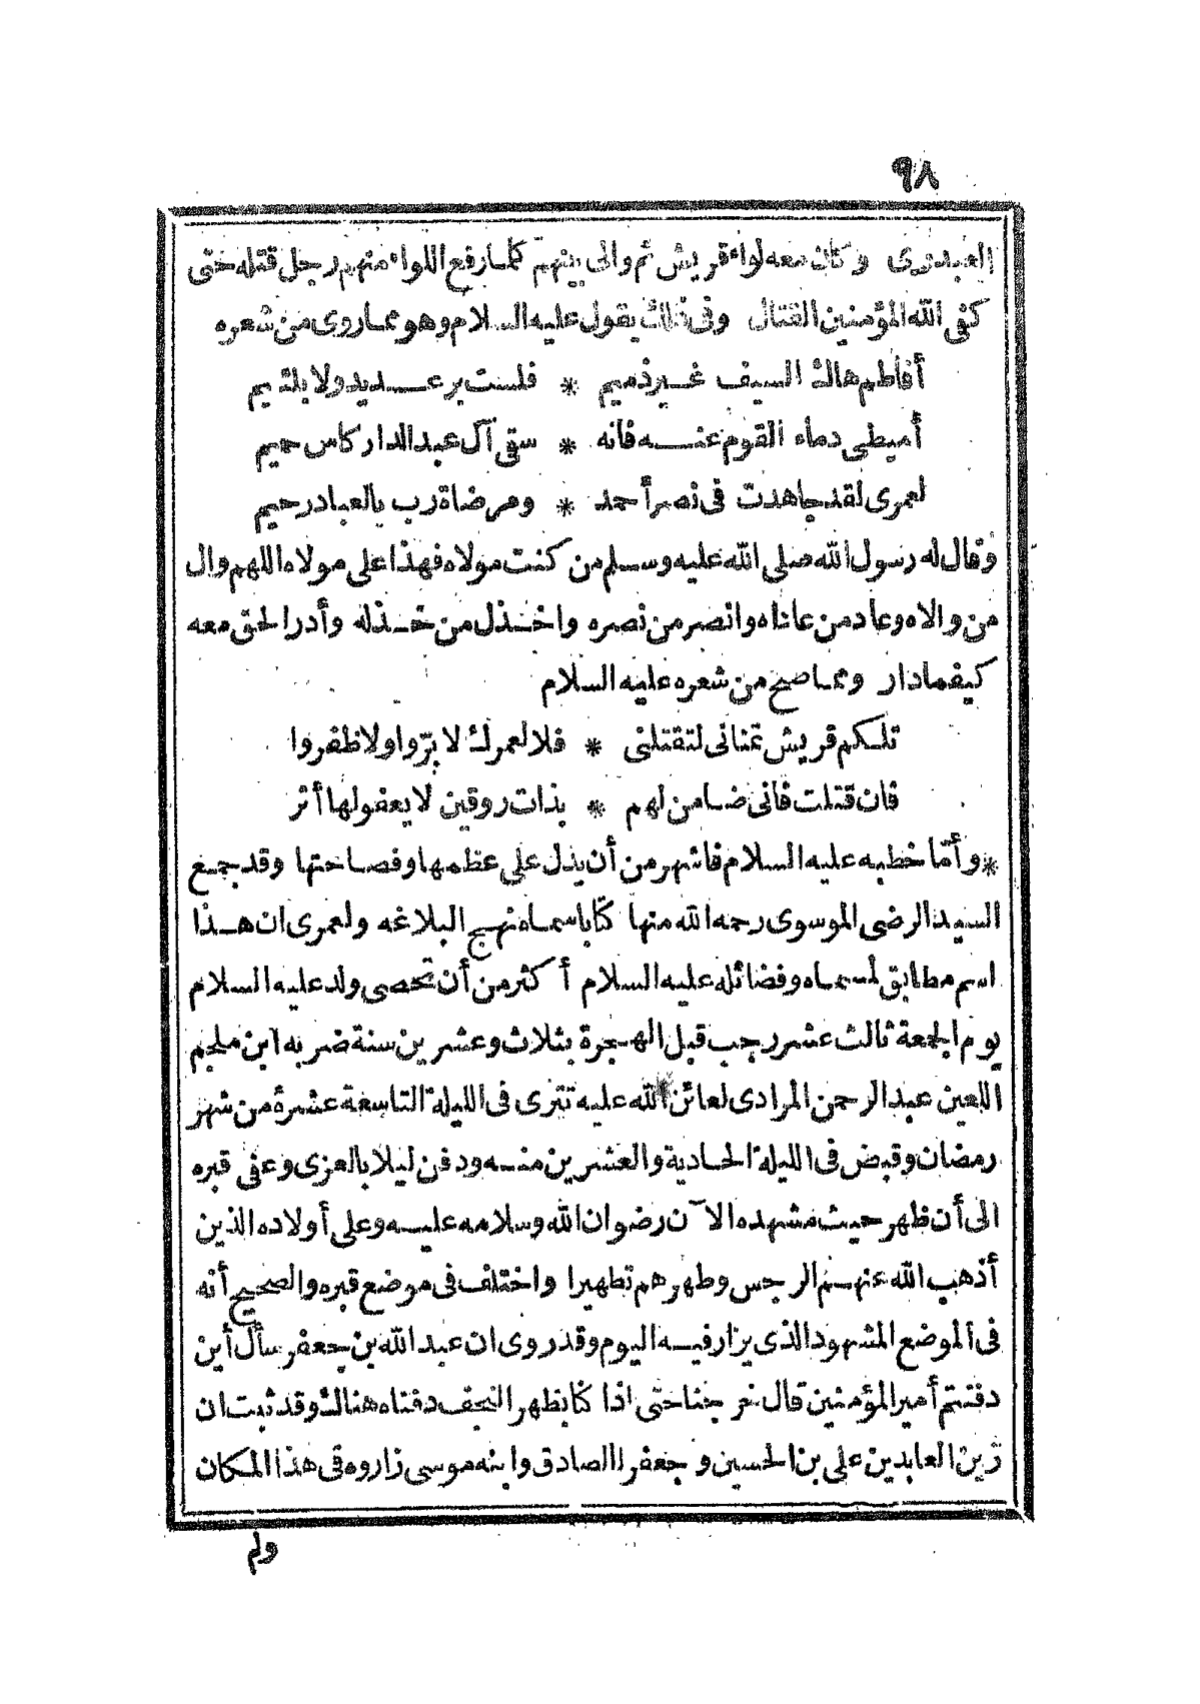 ٩٨
العبدرى وكان معه لواء قريش ثم والى بينهم كلما رفع اللواء منهم رجل قتله حتى
كفى الله المؤمنين القتال وفى ذلك يقول عليه السلام وهو مما روى من شعره
أفاطم هاك السيف غير ذميم * فلست برعديد ولا بلئيم
أميطى دماء القوم عنه فانه * سقى آل عبد الدار كاس حميم
لعمرى لقد جاهدت فى نصر أحمد * ومرضاة رب بالعباد رحيم
وقال له رسول الله صلى الله عليه وسلم من كنت مولاه فهذا على مولاه اللهم وال
من والاه وعاد من عاداه وانصر من نصره واخذل من خذله وأدر الحق معه
كيفما دار ومما صح من شعره عليه السلام
تلكم قريش تمنانى لتقتلنى * فلا لعمرك لا برّوا ولا ظفروا
فان قتلت فانى ضامن لهم * بذات روقين لا يعفو لها أثر
* وأمّا خطبه عليه السلام فاشهر من أن يدل على عظمها وفصاحتها وقد جمع
السيد الرضى الموسوى رحمه الله منها كتابا سماه نهج البلاغه ولعمرى ان هذا
اسم مطابق لمسماه وفضائله عليه السلام أكثر من أن تحصى ولد عليه السلام
يوم الجمعة ثالث عشر رجب قبل الهجرة بثلاث وعشرين سنة ضربه ابن ملجم
اللعين عبد الرحمن المرادى لعائن الله عليه تترى فى الليلة التاسعة عشرة من شهر
رمضان وقبض فى الليلة الحادية والعشرين منه ودفن ليلا بالعزى وعفى قبره
الى أن ظهر حيث مشهده الآن رضوان الله وسلامه عليه وعلى أولاده الذين
أذهب الله عنهم الرجس وطهرهم تطهيرا واختلف فى موضع قبره والصحيح أنه
فى الموضع المشهود الذى يزار فيه اليوم وقد روى ان عبد الله بن جعفر سأل أين
دفنتم أمير المؤمنين قال خرجنا حتى اذا كنا بظهر النجف دفناه هناك وقد ثبت ان
زين العابدين على بن الحسين وجعفر الصادق وابنه موسى زاروه فى هذا المكان
ولم